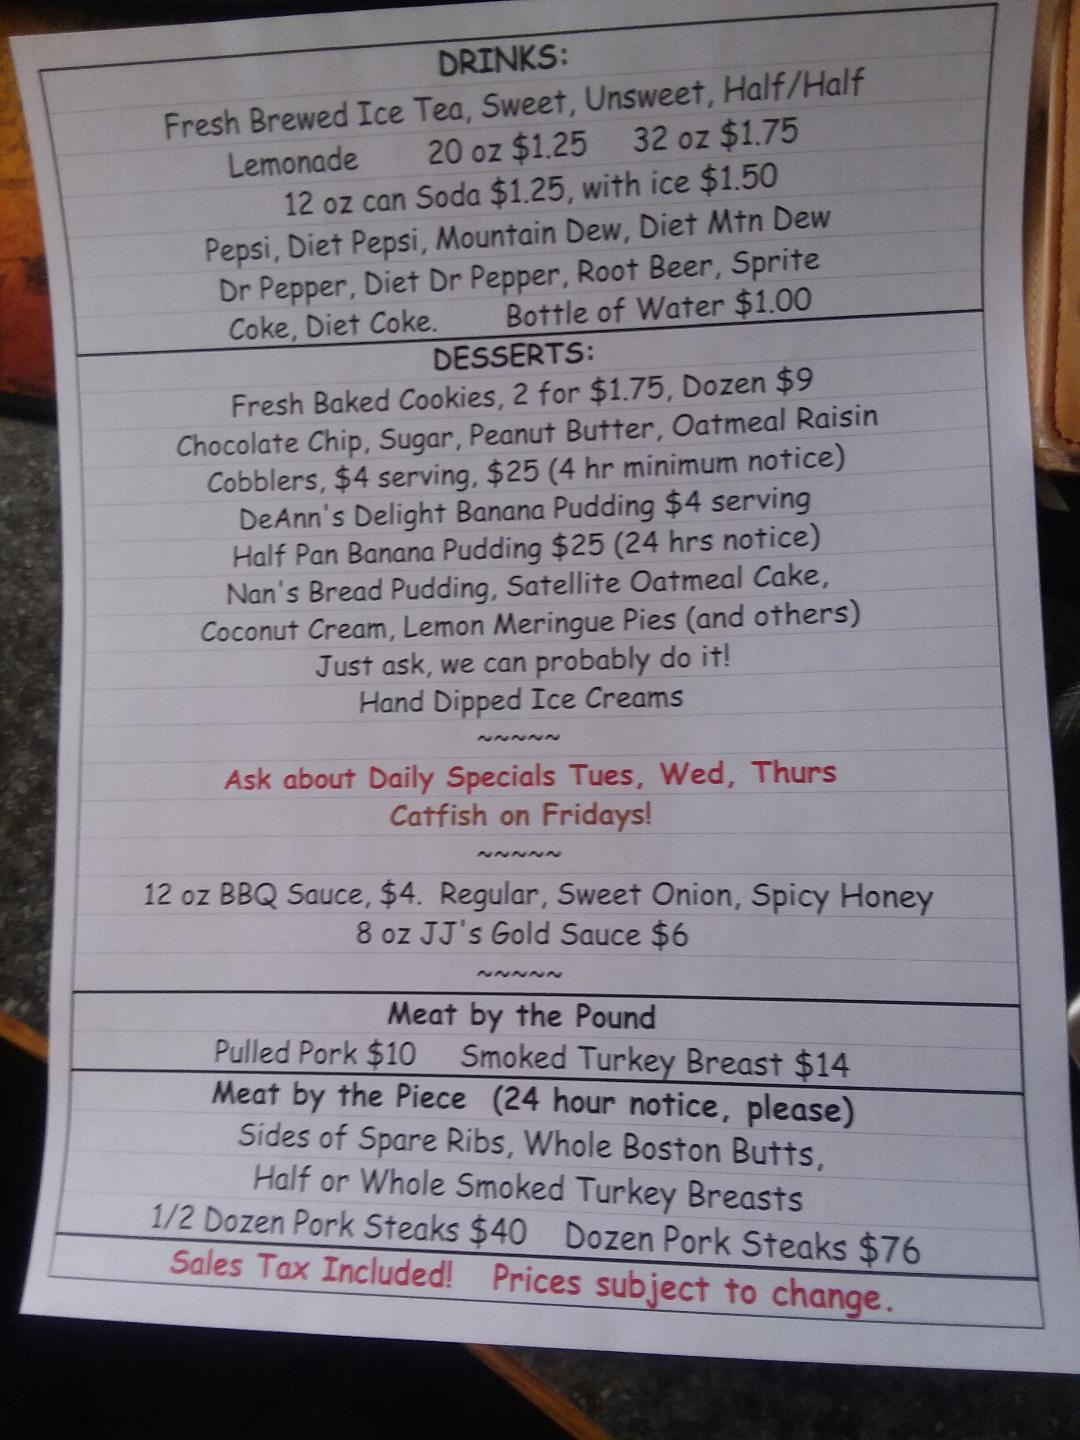 DRINKS:
Fresh Brewed Ice Tea, Sweet, Unsweet, Half/Half
Lemonade 20 oz $1.25 32 oz $1.75
12 oz can Soda $1.25, with ice $1.50
Pepsi, Diet Pepsi, Mountain Dew, Diet Mtn Dew
Dr Pepper, Diet Dr Pepper, Root Beer, Sprite
Coke, Diet Coke. Bottle of Water $1.00
DESSERTS:
Fresh Baked Cookies, 2 for $1.75, Dozen $9
Chocolate Chip, Sugar, Peanut Butter, Oatmeal Raisin
Cobblers, $4 serving, $25 (4 hr minimum notice)
DeAnn's Delight Banana Pudding $4 serving
Half Pan Banana Pudding $25 (24 hrs notice)
Nan's Bread Pudding, Satellite Oatmeal Cake,
Coconut Cream, Lemon Meringue Pies (and others)
Just ask, we can probably do it!
Hand Dipped Ice Creams
~~~~~
Ask about Daily Specials Tues, Wed, Thurs
Catfish on Fridays!
~~~~~
12 oz BBQ Sauce, $4. Regular, Sweet Onion, Spicy Honey
8 oz JJ's Gold Sauce $6
~~~~~
Meat by the Pound
Pulled Pork $10 Smoked Turkey Breast $14
Meat by the Piece (24 hour notice, please)
Sides of Spare Ribs, Whole Boston Butts,
Half or Whole Smoked Turkey Breasts
1/2 Dozen Pork Steaks $40 Dozen Pork Steaks $76
Sales Tax Included! Prices subject to change.